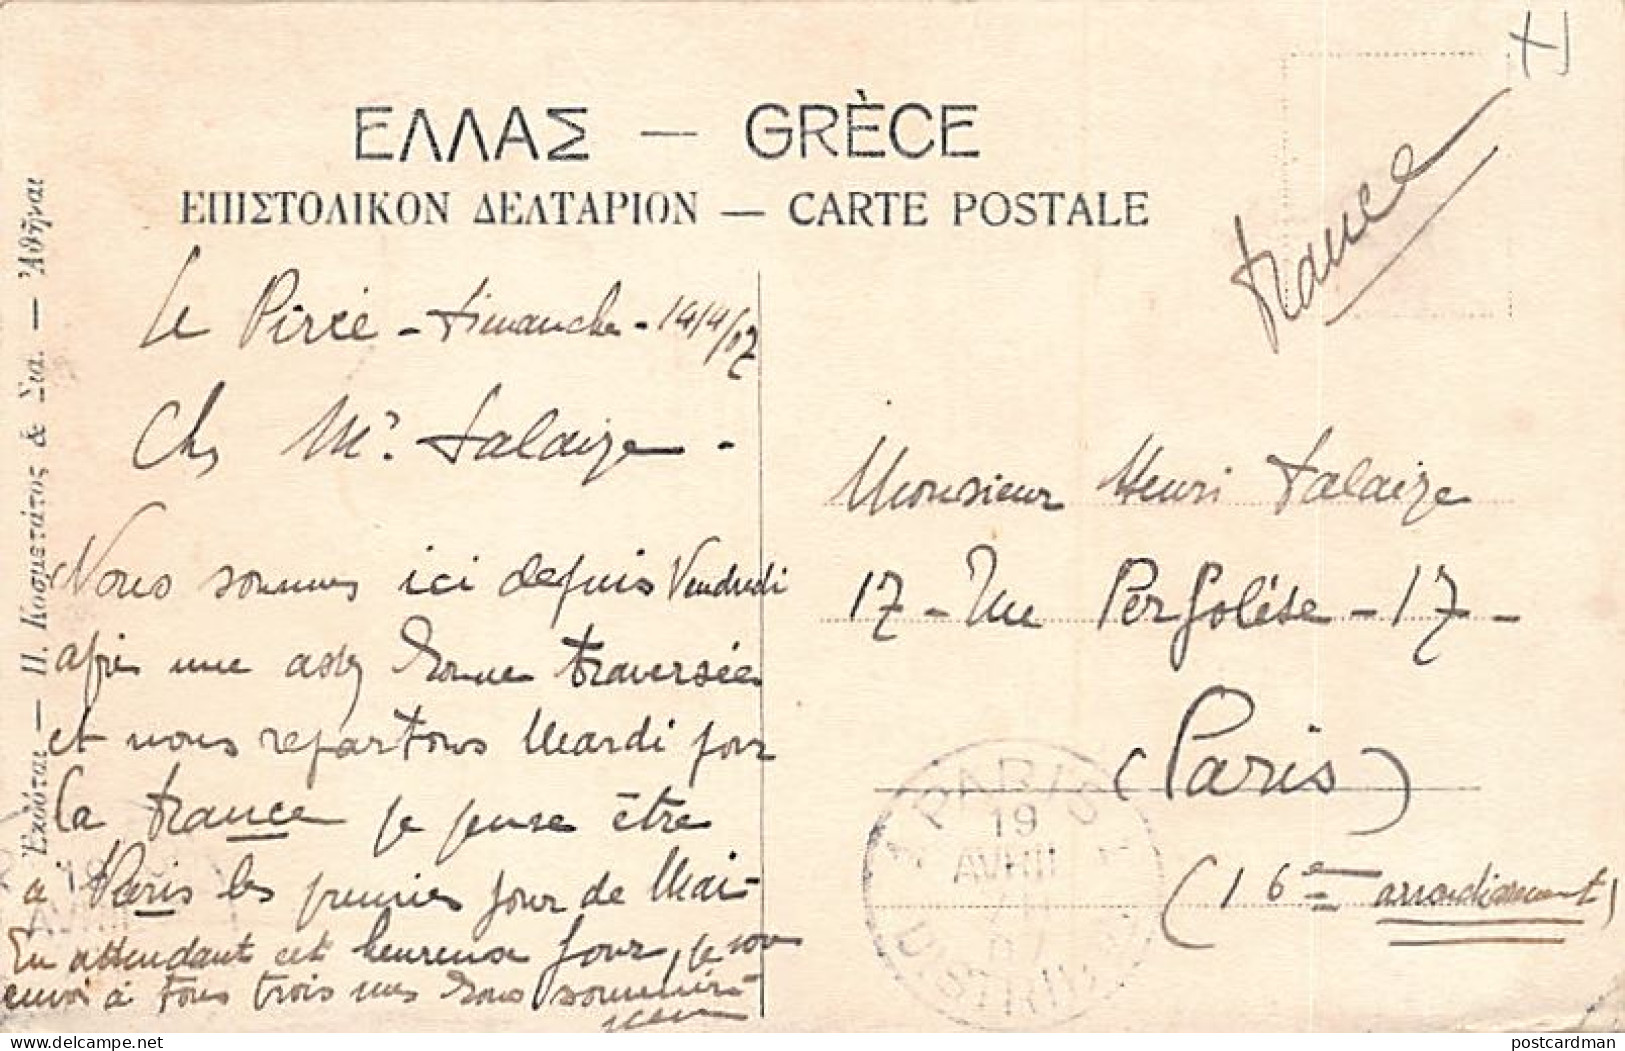 ΕΛΛΑΣ — GRÈCE
ΕΠΙΣΤΟΛΙΚΟΝ ΔΕΛΤΑΡΙΟΝ — CARTE POSTALE
France
Ἐκδόται — Π. Κοσμετάτος & Σια. — Ἀθῆναι
Le Pirée - Dimanche - 14/4/07
Cher Mr. Falaize -
Nous sommes ici depuis Vendredi
après une assez bonne traversée
et nous repartons Mardi pour
la France je pense être
à Paris les premier jour de Mai -
En attendant cet heureuse jour, je vous
envoi à tous trois mes bons souvenirs
Monsieur Henri Falaize
17 - Rue Pergolèse - 17 -
(Paris)
(16e arrondissement)
PARIS
19
AVRIL
07
DISTRIB
postcardman